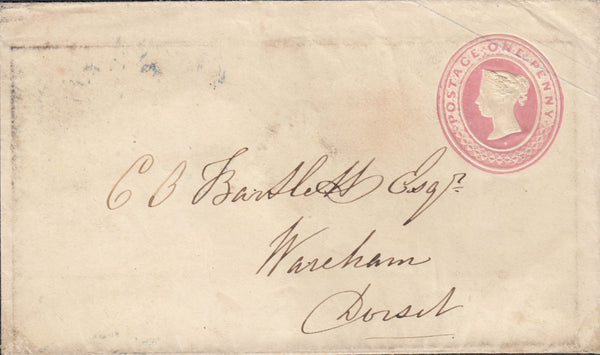 POSTAGE ONE PENNY
C B Bartlett Esqr.
Wareham
Dorset